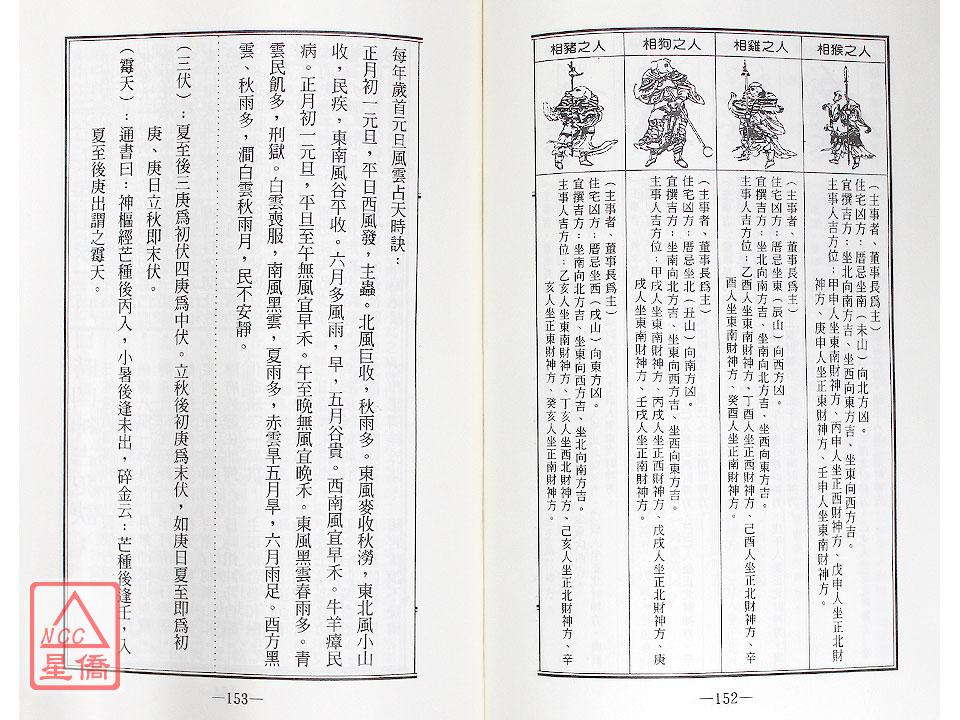 相猴之人
（主事者、董事長爲主）
住宅凶方：厝忌坐南（未山）向北方凶。
宜撰吉方：坐北向南方吉、坐西向東方吉、坐東向西方吉。
主事人吉方位：甲申人坐東南財神方、丙申人坐正西財神方、戊申人坐正北財
神方、庚申人坐正東財神方、壬申人坐東南財神方。
相雞之人
（主事者、董事長爲主）
住宅凶方：厝忌坐東（辰山）向西方凶。
宜撰吉方：坐東向南方吉、坐南向北方吉、坐西向東方吉。
主事人吉方位：乙酉人坐東南財神方、丁酉人坐正西財神方、己酉人坐正北財神方、辛
酉人坐東南財神方、癸酉人坐正南財神方。
相狗之人
（主事者、董事長爲主）
住宅凶方：厝忌坐北（丑山）向南方凶。
宜撰吉方：坐南向北方吉、坐東向西方吉、坐西向東方吉。
主事人吉方位：甲戌人坐東南財神方、丙戌人坐正西財神方、戊戌人坐正北財神方、庚
戌人坐東南財神方、壬戌人坐正南財神方。
相豬之人
（主事者、董事長爲主）
住宅凶方：厝忌坐西（戌山）向東方凶。
宜撰吉方：坐南向北方吉、坐東向西方吉、坐北向南方吉。
主事人吉方位：乙亥人坐東南財神方、丁亥人坐西北財神方、己亥人坐正北財神方、辛
亥人坐正東財神方、癸亥人坐正南財神方。
—152—
每年歲首元旦風雲占天時訣：
正月初一元旦，平日西風發，主蟲。北風巨收，秋雨多。東風麥收秋澇，東北風小山
收，民疾，東南風谷平收。六月多風雨，早，五月谷貴。西南風宜早禾。牛羊瘴民
病。正月初一元旦，平旦至午無風宜早禾。午至晚無風宜晚禾。東風黑雲春雨多。青
雲民飢多，刑獄。白雲喪服，南風黑雲，夏雨多，赤雲旱五月旱，六月雨足。西方黑
雲、秋雨多，澗白雲秋雨月，民不安靜。
（三伏）：夏至後三庚爲初伏四庚爲中伏。立秋後初庚爲末伏，如庚日夏至即爲初
庚、庚日立秋即末伏。
（霉天）：通書曰：神樞經芒種後丙入，小暑後逢未出，碎金云：芒種後逢壬，入
夏至後庚出謂之霉天。
—153—
NCC
星僑